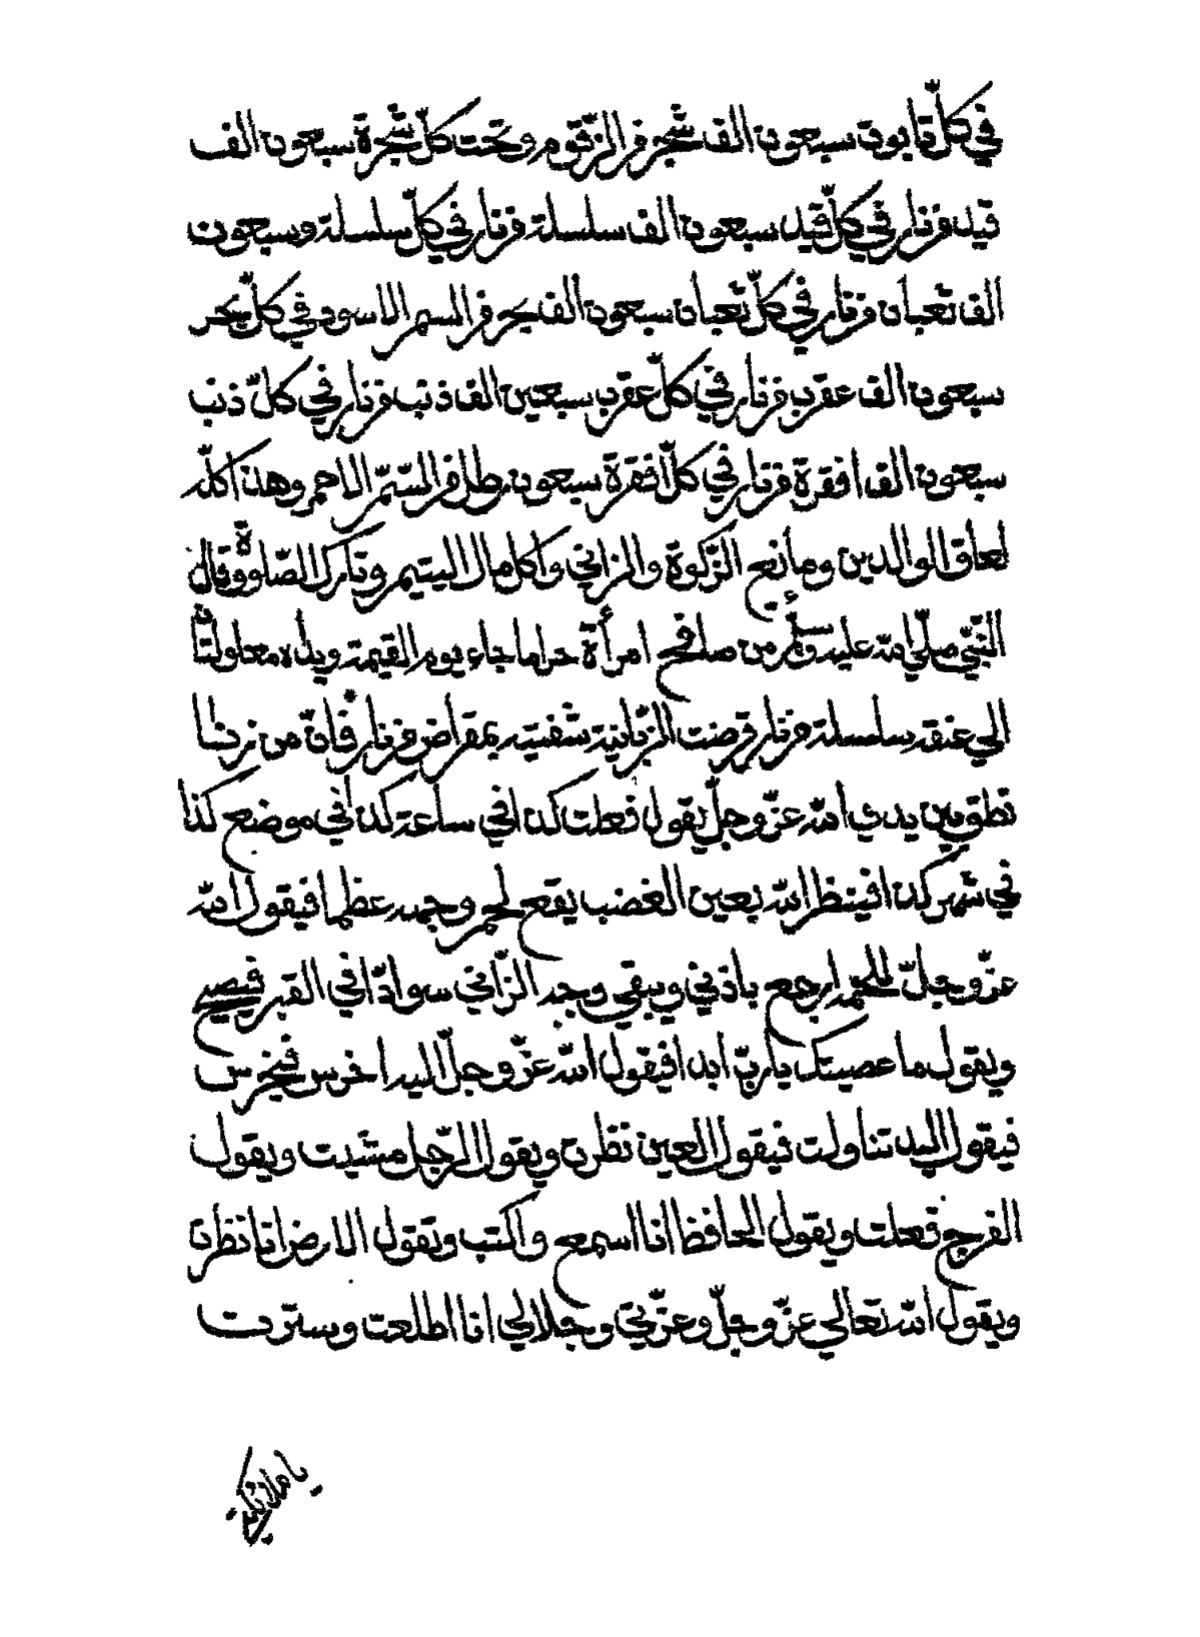 في كلّ تابوت سبعون الف شجر من الزّقوم وتحت كلّ شجرة سبعون الف
قيد من نار في كلّ قيد سبعون الف سلسلة من نار في كلّ سلسلة وسبعون
الف ثعبان من نار في كلّ ثعبان سبعون الف بحر من السم الاسود في كلّ بحر
سبعون الف عقرب من نار في كلّ عقرب سبعين الف ذنب من نار في كلّ ذنب
سبعون الف افقرة من نار في كلّ افقرة سبعون رطل من السّمّ الاحمر وهذا كلّه
لعاق الوالدين ومانع الزّكوة والزاني واكل مال اليتيم وتارك الصّلوة وقال
النّبيّ صلّي الله عليه وسلّم من صافح امرأة حراما جاء يوم القيمة ويداه مغلولتان
الي عنقه سلسلة من نار قرضت الزّبانية شفتيه بمقراض من نار فانّ من زنا
نطق بين يدي الله عزّ وجلّ يقول فعلت كذا في ساعة كذا في موضع كذا
في شهر كذا فينظر الله بعين الغضب يقع لحم وجهه عظما فيقول الله
عزّ وجلّ للحم ارجع باذني ويبقي وجه الزّاني سوادّا في القبر فيصيح
ويقول ما عصيتك ياربّ ابدا فيقول الله عزّ وجلّ اليد اخرس فيخرس
فيقول اليد تناولت فيقول العين نظرت ويقول الرّجل مشيت ويقول
الفرج فعلت ويقول الحافظ انا اسمع واكتب وتقول الارض انا نظرت
ويقول الله تعالي عزّ وجلّ وعزّتي وجلالي انا اطلعت وسترت
يا ملائكتي